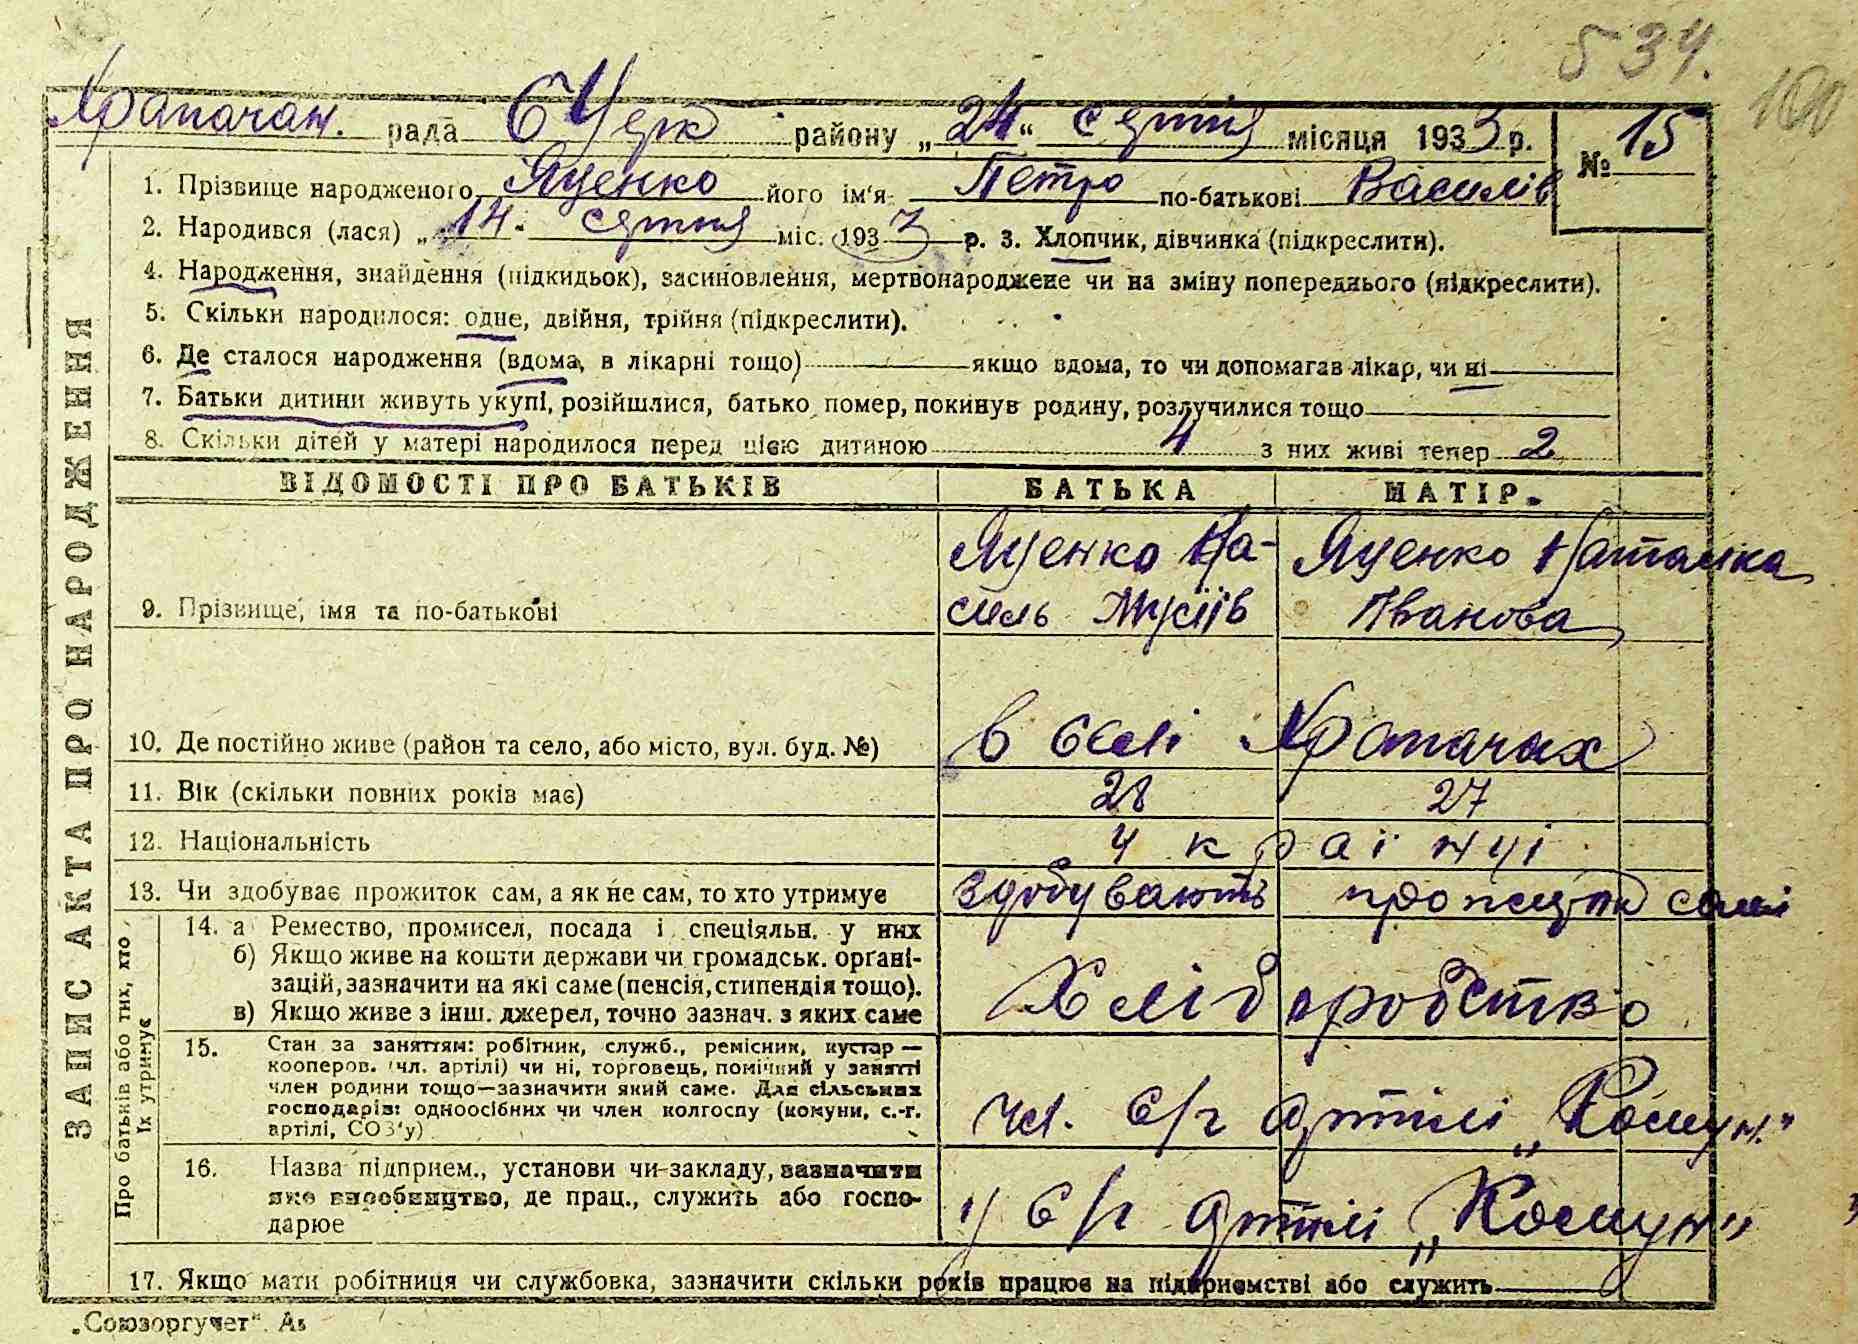 534.
100
Храпачан. рада БЦерк району „24“ серпня місяця 1933 р. № 15
1. Прізвище народженого Яценко його ім'я Петро по-батькові Василів
2. Народився (лася) „14“ серпня міс. 1933 р. 3. Хлопчик, дівчинка (підкреслити).
4. Народження, знайдення (підкидьок), засиновлення, мертвонароджене чи на зміну попереднього (підкреслити).
5. Скільки народилося: одне, двійня, трійня (підкреслити).
6. Де сталося народження (вдома, в лікарні тощо) якщо вдома, то чи допомагав лікар, чи ні
7. Батьки дитини живуть укупі, розійшлися, батько помер, покинув родину, розлучилися тощо
8. Скільки дітей у матері народилося перед цією дитиною 4 з них живі тепер 2
ВІДОМОСТІ ПРО БАТЬКІВ БАТЬКА МАТІР.
Яценко Ва- Яценко Наталка
9. Прізвище, імя та по-батькові силь Мусіїв Іванова
10. Де постійно живе (район та село, або місто, вул. буд. №) в селі Храпачах
11. Вік (скільки повних років має) 28 27
12. Національність українці
13. Чи здобуває прожиток сам, а як не сам, то хто утримує здобувають прожиток самі
14. а Ремество, промисел, посада і спеціяльн. у них
б) Якщо живе на кошти держави чи громадськ. орґані-
зацій, зазначити на які саме (пенсія, стипендія тощо). Хліборобство
в) Якщо живе з інш. джерел, точно зазнач. з яких саме
15. Стан за заняттям: робітник, служб., ремісник, кустар—
кооперов. (чл. артілі) чи ні, торговець, помічний у занятті
член родини тощо—зазначити який саме. Для сільських
господарів: одноосібних чи член колгоспу (комуни, с.-г. чл. с/г артілі „Комун.“
артілі, СОЗ'у)
16. Назва підприєм., установи чи закладу, зазначити
яке виробництво, де прац., служить або госпо- у с/г артілі „Комун“
дарює
17. Якщо мати робітниця чи службовка, зазначити скільки років працює на підприємстві або служить
ЗАПИС АКТА ПРО НАРОДЖЕННЯ
Про батьків або тих, хто
їх утримує
„Союзоргучет“.